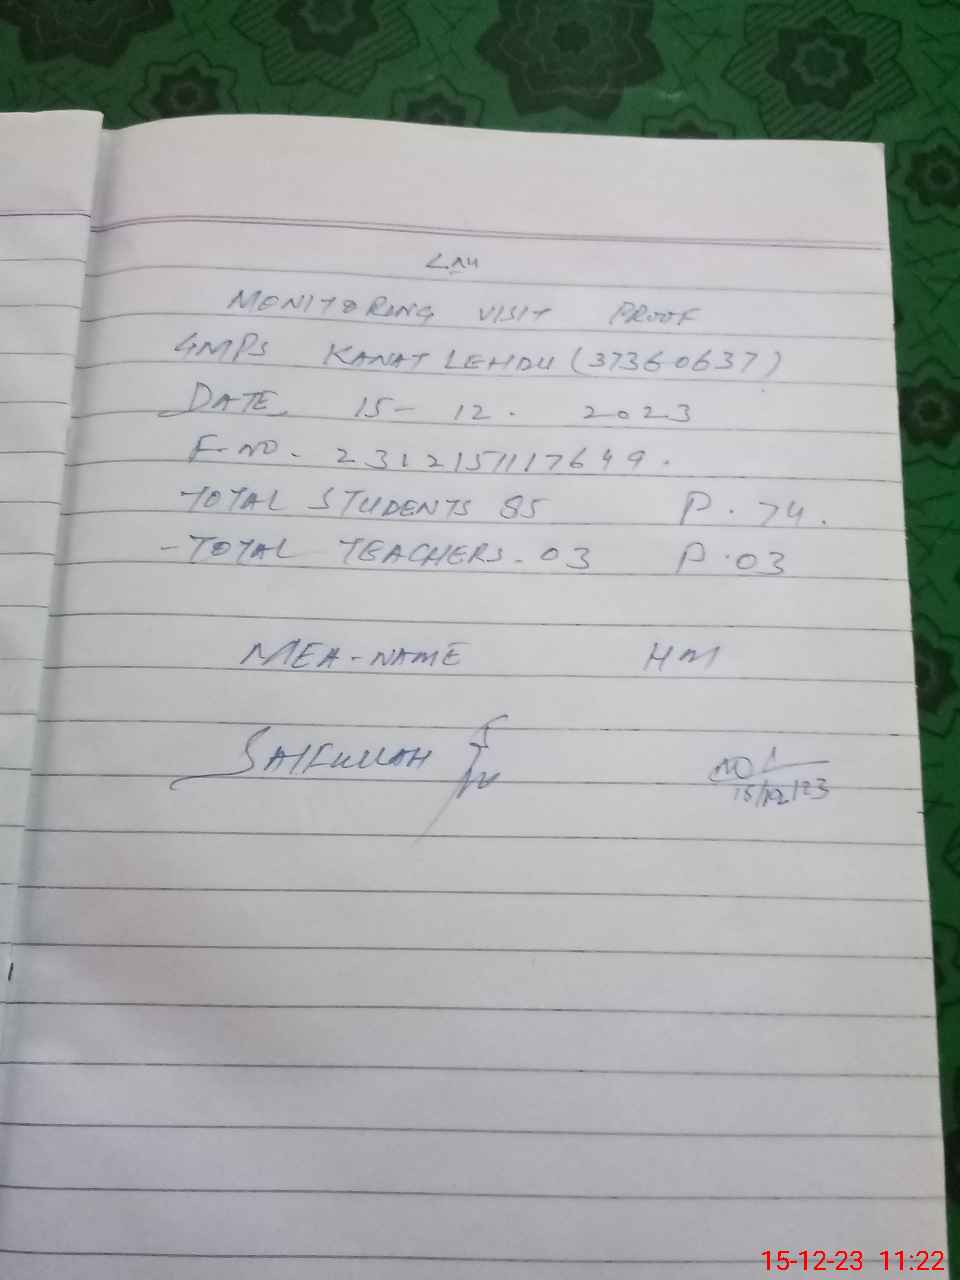 MONITORING VISIT PROOF
GMPS KANAT LEHDU (37360637)
DATE 15- 12. 2023
F-NO. 2312151117649.
TOTAL STUDENTS 85 P. 74.
-TOTAL TEACHERS-03 P.03
MEA-NAME HM
SAIFULLAH
15/12/23
15-12-23 11:22